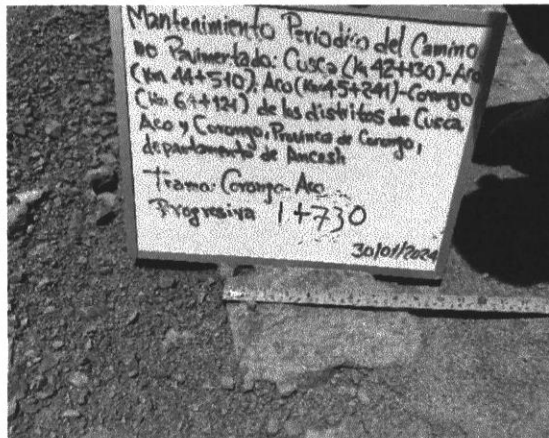 Mantenimiento Periodico del Camino
no Pavimentado: Cusca (Km 42+130)-Aco
(Km 44+510), Aco (Km 45+241)-Corongo
(Km 64+121) de los distritos de Cusca,
Aco y Corongo, Provincia de Corongo,
departamento de Ancash
Tramo: Corongo-Aco
Progresiva 1+730
30/01/2024